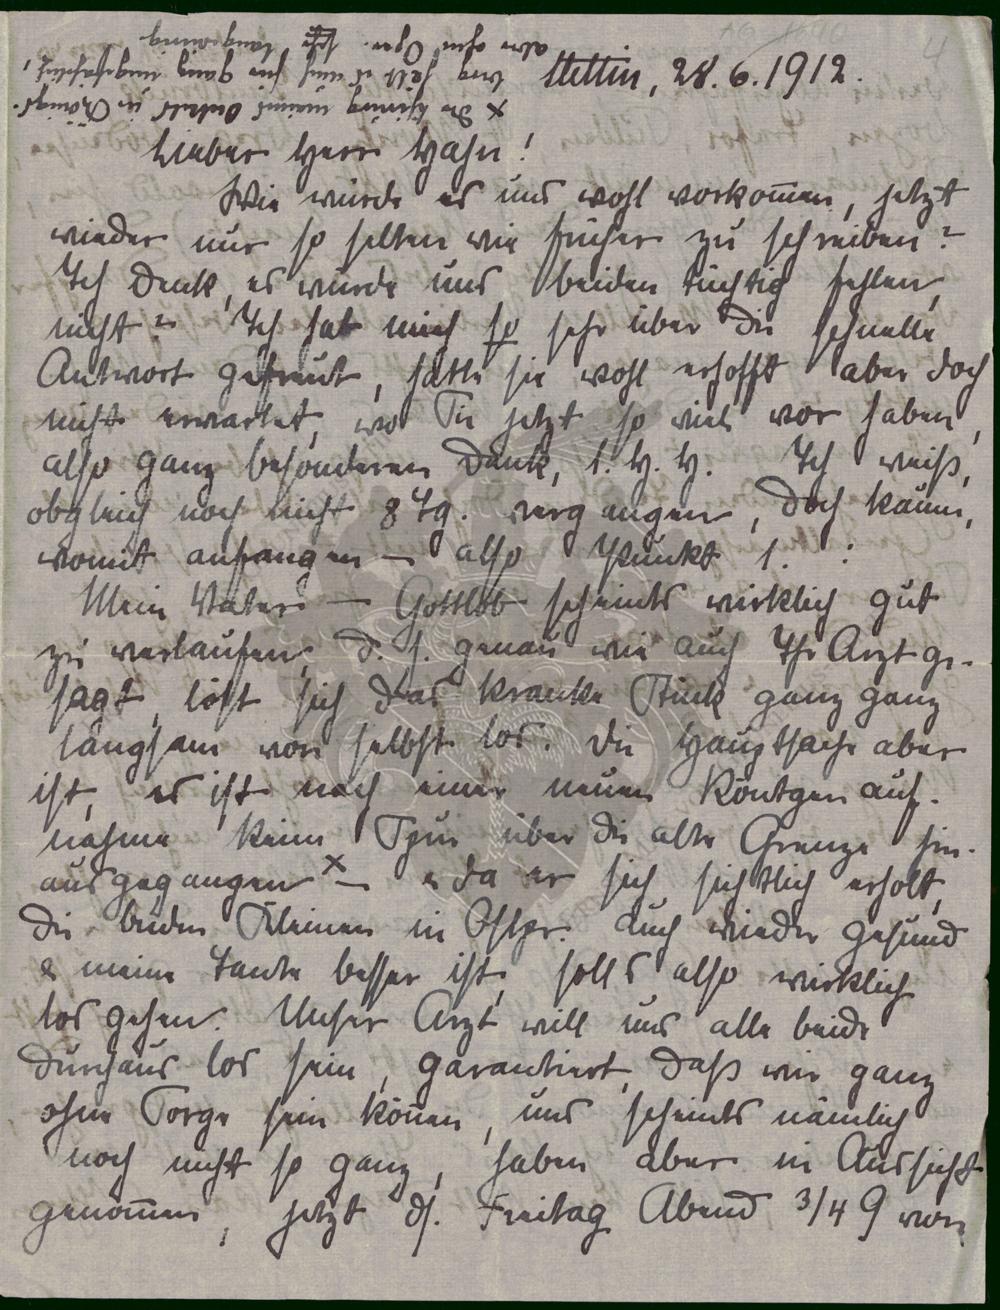 Stettin, 28.6.1912.
Lieber Herr Hahn!
Wie würde es uns wohl vorkom̅en, jetzt
wieder nur so selten wie früher zu schreiben?
Ich denk, es würde uns beiden tüchtig fehlen,
nicht? Ich hab mich so sehr über die schnelle
Antwort gefreut, hatte sie wohl erhofft aber doch
nicht erwartet, wo Sie jetzt so viel vor haben,
also ganz besonderen Dank, l. H. H. Ich weiß,
obgleich noch nicht 8 Tg. vergangen, doch kaum,
womit anfangen — also Punkt 1. :
Mein Vater — Gottlob scheints wirklich gut
zu verlaufen, d. h. genau wie auch Ihr Arzt ge-
sagt, löst sich das kranke Stück ganz ganz
langsam von selbst los. Die Hauptsache aber
ist, es ist nach einer neuen Röntgenauf-
nahme keine Spur über die alte Grenze hin-
ausgegangen x — & da er sich sichtlich erholt,
die beiden Kleinen in Ostpr. auch wieder gesund
& meine Tante besser ist, solls also wirklich
los gehen. Unser Arzt will uns alle beide
durchaus los sein, garantiert, daß wir ganz
ohne Sorge sein kön̅en, uns scheints nämlich
noch nicht so ganz, haben aber in Aussicht
genom̅en, jetzt d. Freitag Abend 3/4 9 von
x Die Heilung meines Onkels in Königsbg.
hält er auch für ganz ungefährlich,
aber ohne Oper. sehr langwierig